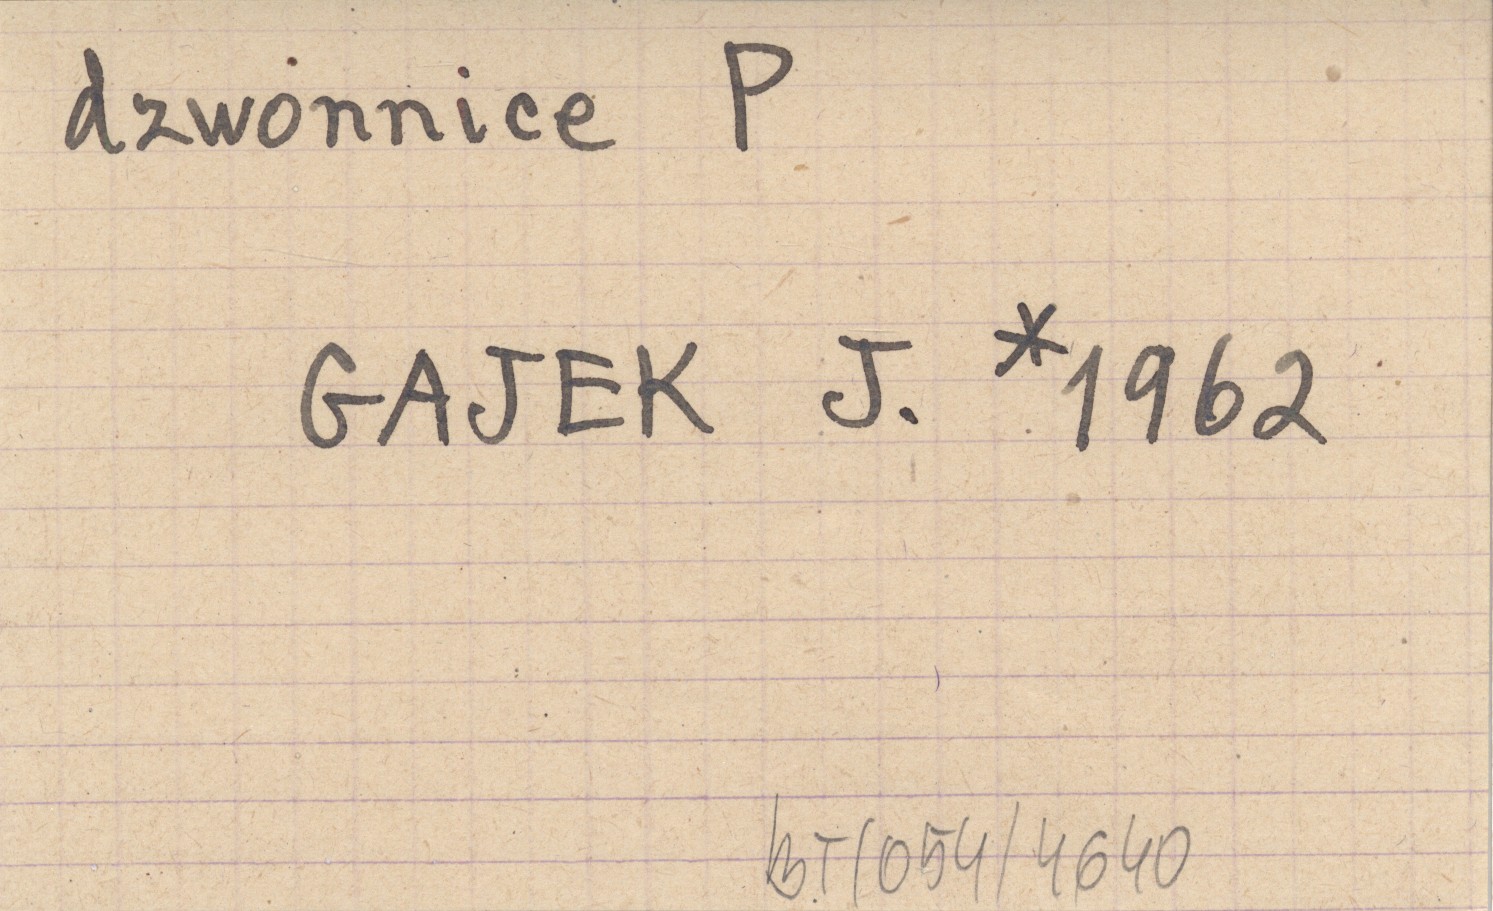 dzwonnice P
GAJEK J. *1962
BT/054/4640